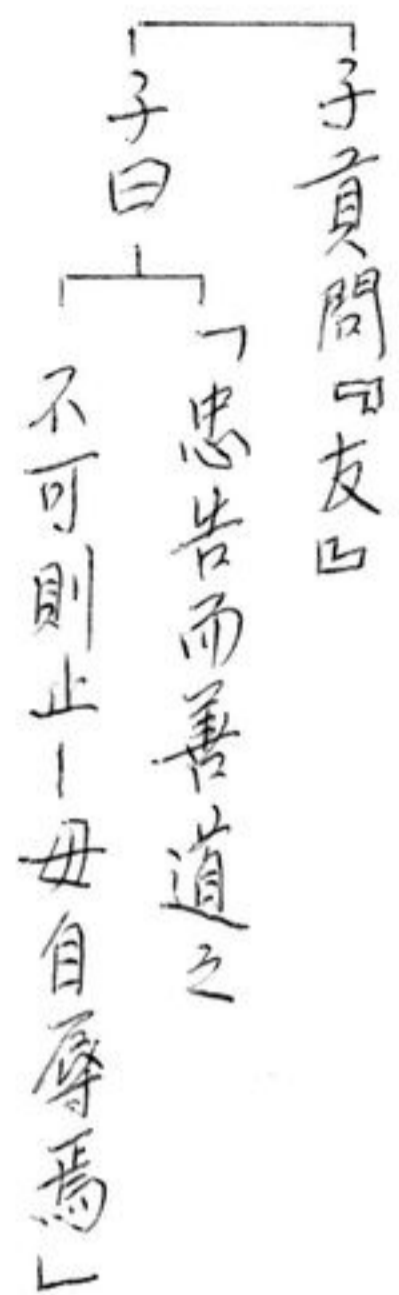 子貢問『友』
子曰
「忠告而善道之
不可則止－毋自辱焉」